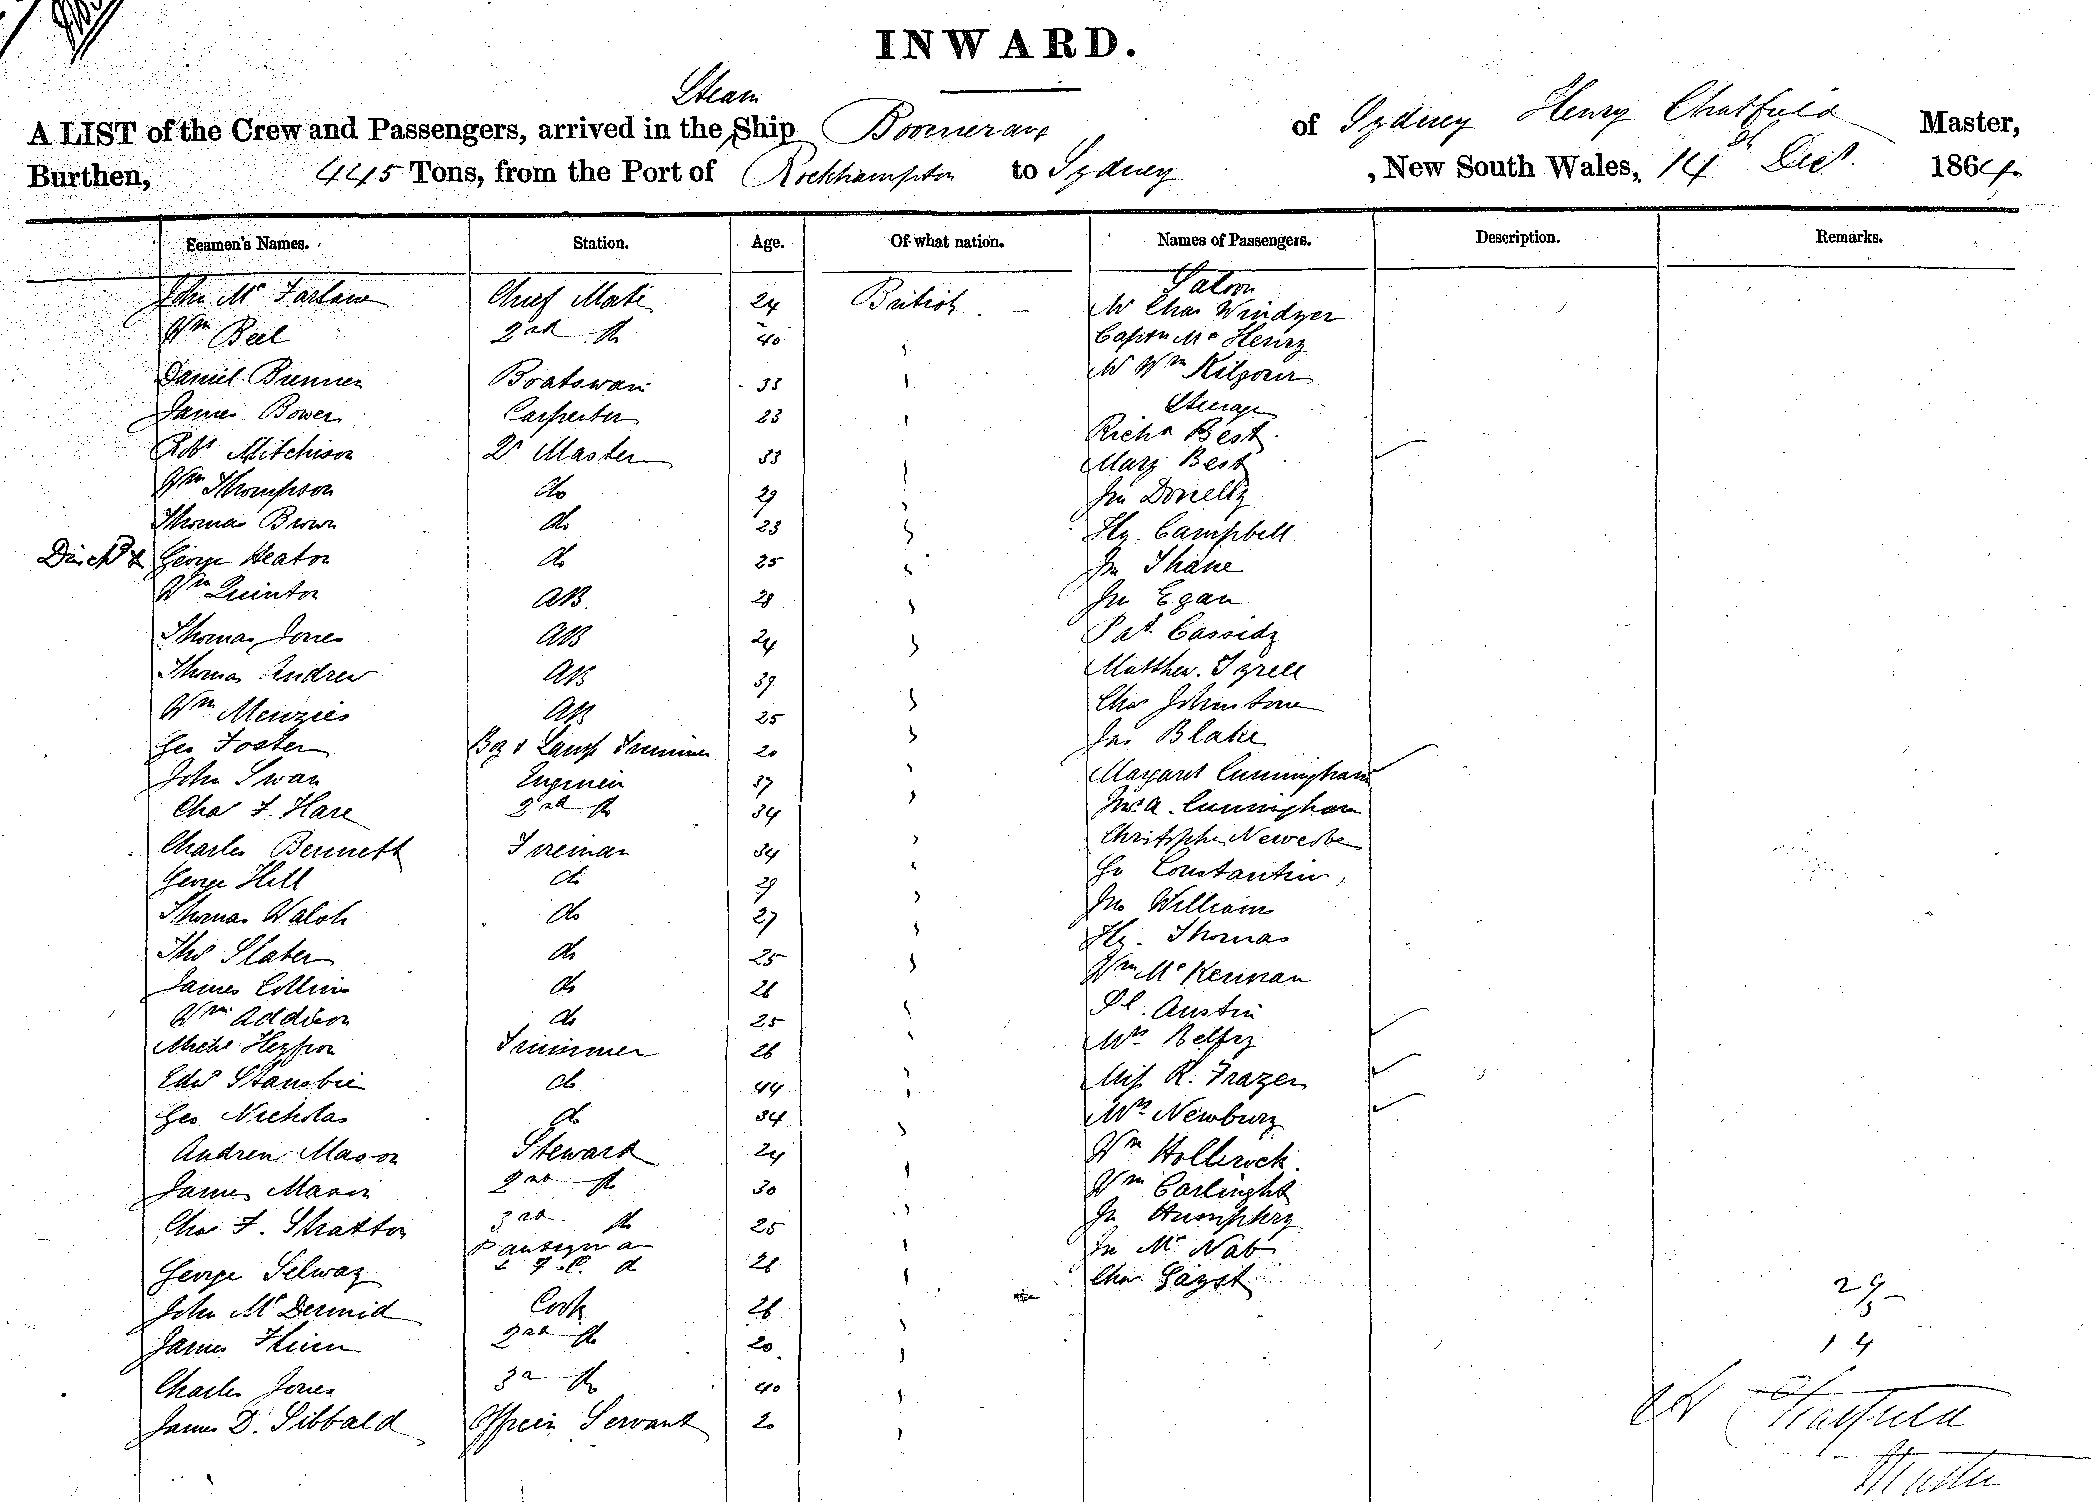 INWARD.
Steam
A LIST of the Crew and Passengers, arrived in the Ship Boomerang of Sydney Henry Chatfield Master,
Burthen, 445 Tons, from the Port of Rockhampton to Sydney , New South Wales, 14th Dect. 1864.
Seamen's Names. Station. Age. Of what nation. Names of Passengers. Description. Remarks.
Saloon
John Mc Farlane Chief Mate 24 British Mr Chas Windyer
Wm Beel 2nd do 40 Captn Mc Henry
Daniel Brennen Boatswain 33 Mr Wm Kilgour
James Bower Carpenter 23 Steerage
Richd Best
Robt Mitchison Qr Master 33 Mary Best
Wm Thompson do 29 Jn Donelly
Thomas Brown do 23 Hy. Campbell
Disch'd George Heaton do 25 Jn Thane
Wm Quinton AB 28 Jn Egan
Thomas Jones AB 24 Pat. Cassidy
Thomas Andrew AB 39 Matthew Tyrell
Wm Menzies AB 25 Chas Johnstone
Geo Foster Boy & Lamp Trimmer 20 Jas Blake
John Swan Engineer 37 Margaret Cunningham
Chas F. Hare 2nd do 34 Jno. A. Cunningham
Charles Bennett Fireman 34 Christopher
George Hill do 29 Constantin
Thomas Walsh do 27 Jno William
Thos Slater do 25 Hy. Thomas
James Collins do 26 Wm Mc Kernan
Wm Addison do 25 Austin
Trimmer 26 Mrs Belfry
Edwd Stansbie do 44 Miss R. Frazer
Geo Nicholas do 34 Mrs Newbury
Andrew Mason Steward 24 Wm Hollbrock
James Mason 2nd do 30 Wm
Chas F. Stratton 3rd do 25 Jn Humphry
Pantryman Jn Mc Nab
George Selway 26 Chas
John Mc Dermid Cook 26 29/5
James 2nd do 20 14
Charles Jones 3rd do 40
James D. Sibbald Officers Servant 20 Chatfield
Master